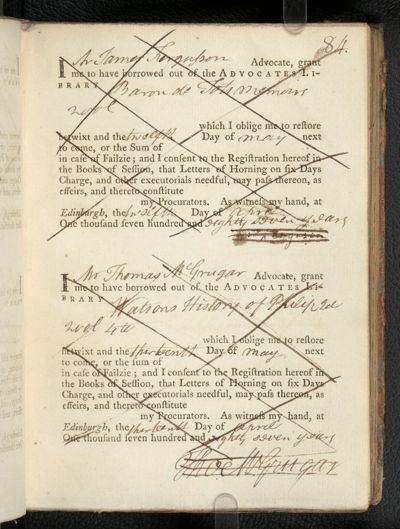 84.
I Mr James Ferguson Advocate, grant
me to have borrowed out of the ADVOCATES LI-
BRARY Baron de Tots memoirs
2 vol
which I oblige me to restore
betwixt and the twelfth Day of may next
to come, or the Sum of
in case of Failzie; and I consent to the Registration hereof in
the Books of Session, that Letters of Horning on six Days
Charge, and other executorials needful, may pass thereon, as
effeirs, and thereto constitute
my Procurators. As witness my hand, at
Edinburgh, the twelth Day of april
One thousand seven hundred and eighty seven years
I Mr Thomas McGrugar Advocate, grant
me to have borrowed out of the ADVOCATES LI-
BRARY Watsons History of Philip 2d
2 vol 4to
which I oblige me to restore
betwixt and the thirteenth Day of may next
to come, or the sum of
in case of Failzie; and I consent to the Registration hereof in
the Books of Session, that Letters of Horning on six Days
Charge, and other executorials needful, may pass thereon, as
effeirs, and thereto constitute
my Procurators. As witness my hand, at
Edinburgh, the thirteenth Day of april
One thousand seven hundred and eighty seven years
Thos McGrugar